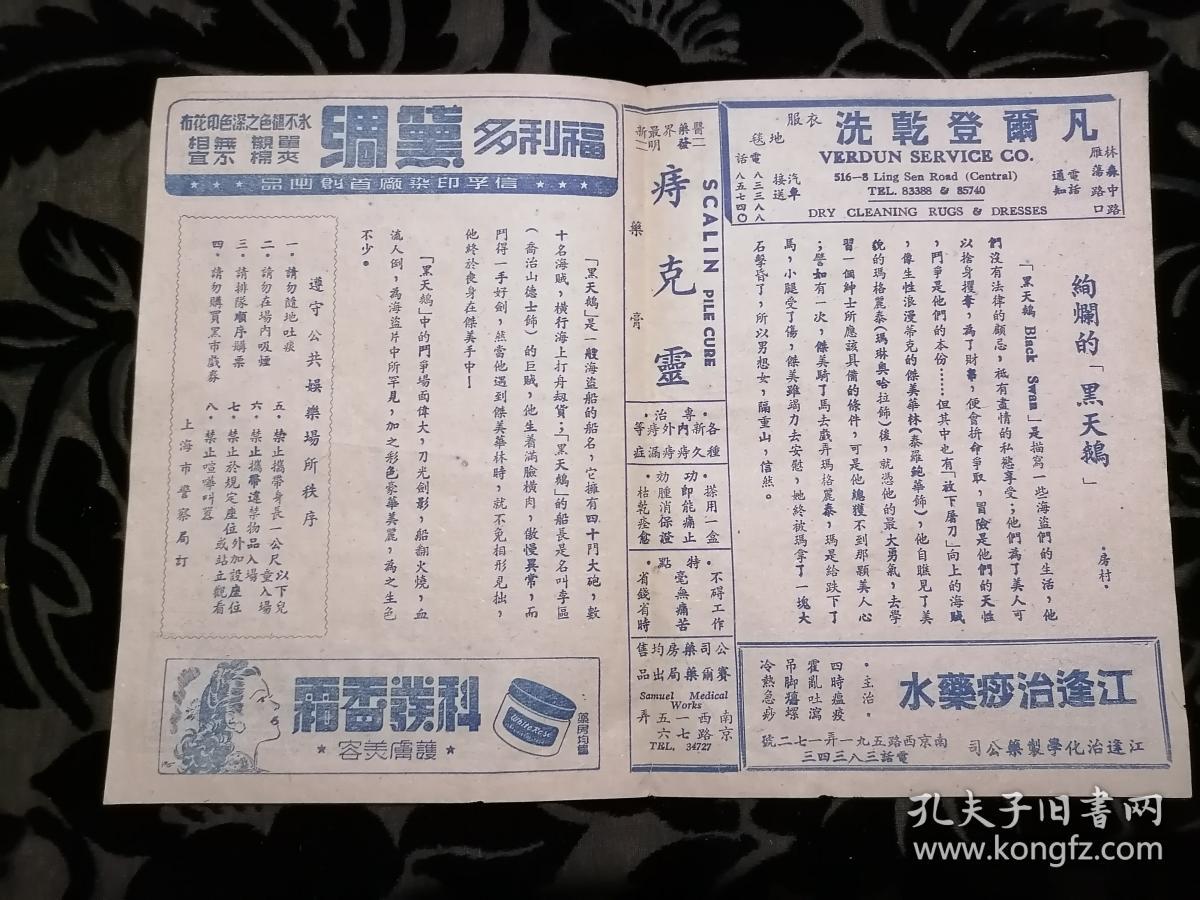 凡爾登乾洗
衣服
地毯
VERDUN SERVICE CO.
516-8 Ling Sen Road (Central)
TEL. 83388 & 85740
DRY CLEANING RUGS & DRESSES
林森中路
雁蕩路口
電話
通知
汽車
接送
電話
八三三八八
八五七四〇
絢爛的「黑天鵝」
·房村·
「黑天鵝 Black Swan」是描寫一些海盜們的生活，他
們沒有法律的顧忌，祗有盡情的私慾享受；他們為了美人可
以捨身攫奪，為了財帛，便會拚命爭取，冒險是他們的天性
，鬥爭是他們的本份……但其中也有「放下屠刀」向上的海賊
，像生性浪漫蒂克的傑美華林（泰羅鮑華飾），他自瞧見了美
貌的瑪格麗泰（瑪琳奧哈拉飾）後，就憑他的最大勇氣，去學
習一個紳士所應該具備的條件，可是他總獲不到那顆美人心
；譬如有一次，傑美騎了馬去戲弄瑪格麗泰，瑪是給跌下了
馬，小腿受了傷，傑美雖竭力去安慰，她終被瑪拿了一塊大
石擊昏了，所以男想女，隔重山，信然。
江逢治痧藥水
·主治·
四時瘟疫
霍亂吐瀉
吊脚癟螺
冷熱急痧
江逢治化學製藥公司
南京西路五九一弄一七二號
電話三八三四三
醫藥界最新
二發明二
痔克靈
藥膏
SCALIN PILE CURE
·專治·
各種新久內外痔瘡痔漏等症
功効
·搽用一盒
即能止痛
消腫保證
枯乾痊愈
·特點·
不碍工作
毫無痛苦
省錢省時
公司藥房均售
賽爾藥局出品
Samuel Medical
Works
南京西路一五七六弄
TEL. 34727
福利多黛綢
永不褪色之深色印花布
單夾
襯棉
無不
相宜
★★★★信孚印染廠首創出品★★★★
「黑天鵝」是一艘海盜船的船名，它擁有四十門大砲，數
十名海賊，橫行海上打舟刼貨；「黑天鵝」的船長是名叫李區
（喬治山德士飾）的巨賊，他生着滿臉橫肉，傲慢異常，而
鬥得一手好劍，然當他遇到傑美華林時，就不免相形見拙，
他終於喪身在傑美手中！
「黑天鵝」中的鬥爭場面偉大，刀光劍影，船翻火燒，血
流人倒，為海盜片中所罕見，加之彩色豪華美麗，為之生色
不少。
遵守公共娛樂場所秩序
一．請勿隨地吐痰
二．請勿在場內吸煙
三．請排隊順序購票
四．請勿購買黑市戲券
五．禁止攜帶身長一公尺以下兒童入場
六．禁止攜帶違禁物品入場
七．禁止於規定座位外加設座位或站立觀看
八．禁止喧嘩叫囂
上海市警察局訂
科發香霜
★護膚美容★
White Rose
藥房均售
孔夫子旧书网
www.kongfz.com